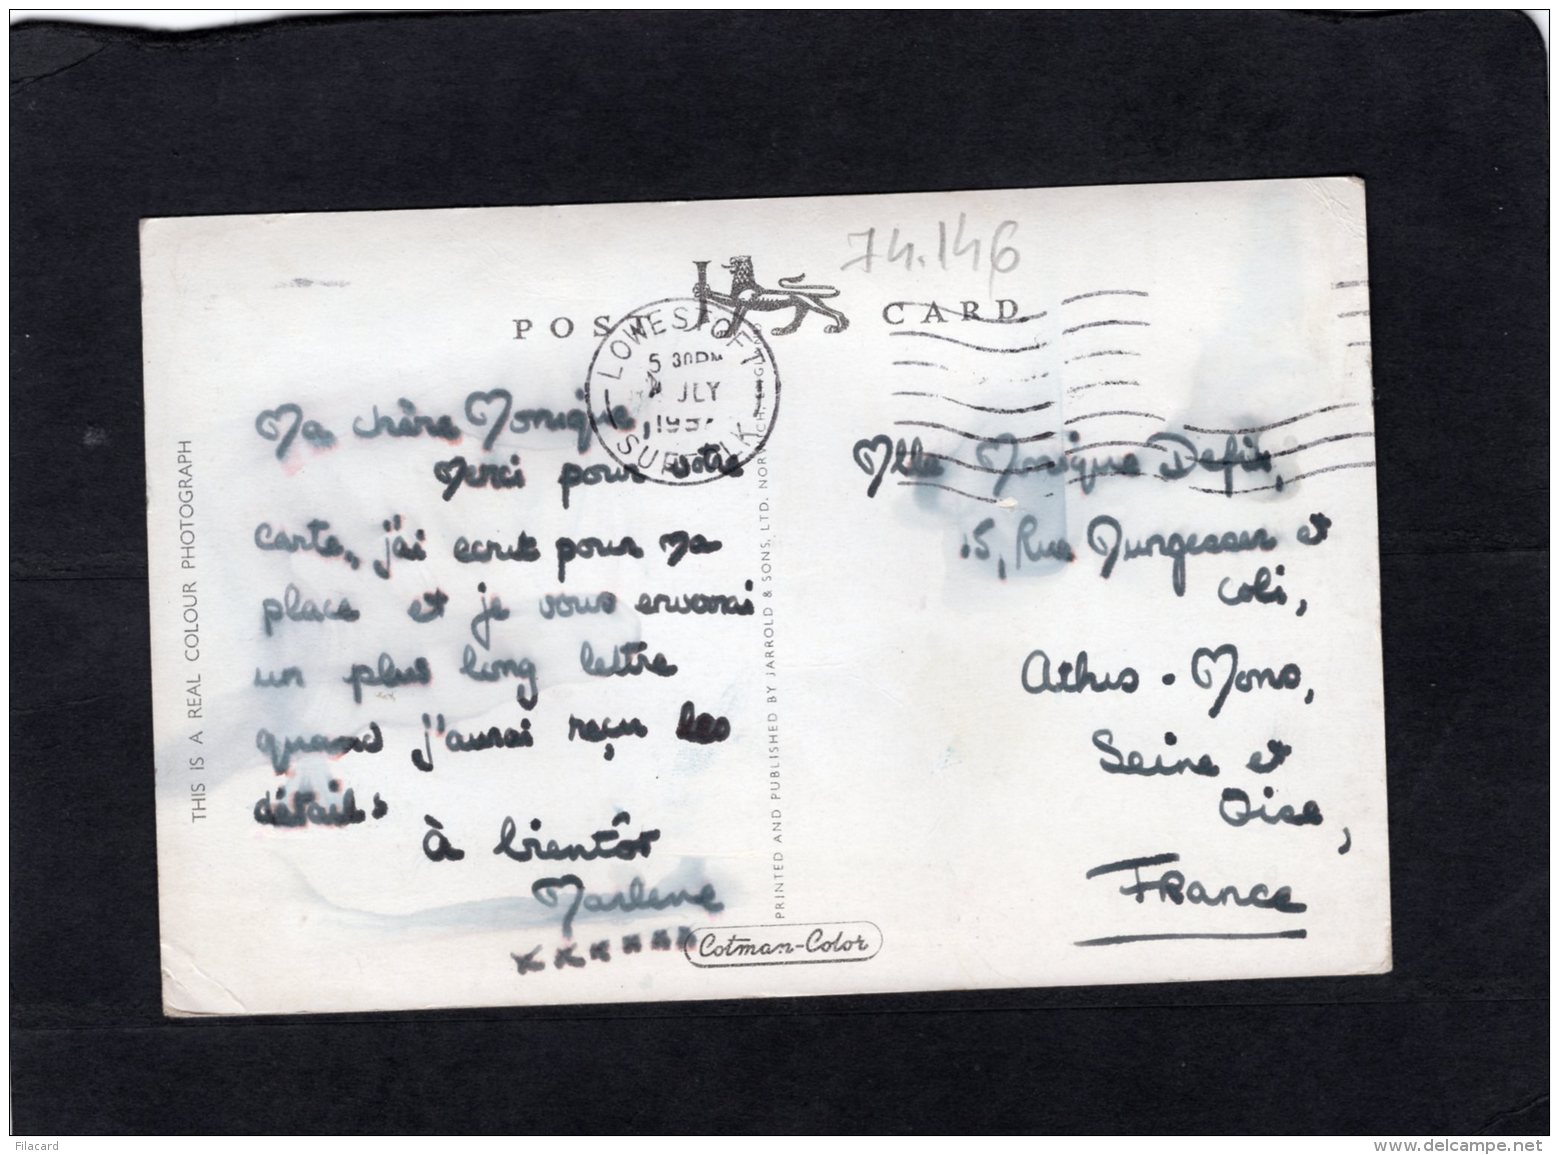 74.146
POST CARD
LOWESTOFT
5 30PM
4 JLY
SUFFOLK
Ma chère Monique,
Merci pour votre
carte, j'ai ecrit pour ma
place et je vous envorai
un plus long lettre
quand j'aurai reçu les
détails
à bientôt
Marlene
xxxxxx
Mlle Monique
15, Rue Nungesser et
Coli,
Athis-Mons,
Seine et
Oise,
FRANCE
THIS IS A REAL COLOUR PHOTOGRAPH
PRINTED AND PUBLISHED BY JARROLD & SONS, LTD. NORWICH, ENGLAND
Cotman-Color
Filacard
delcampe.net